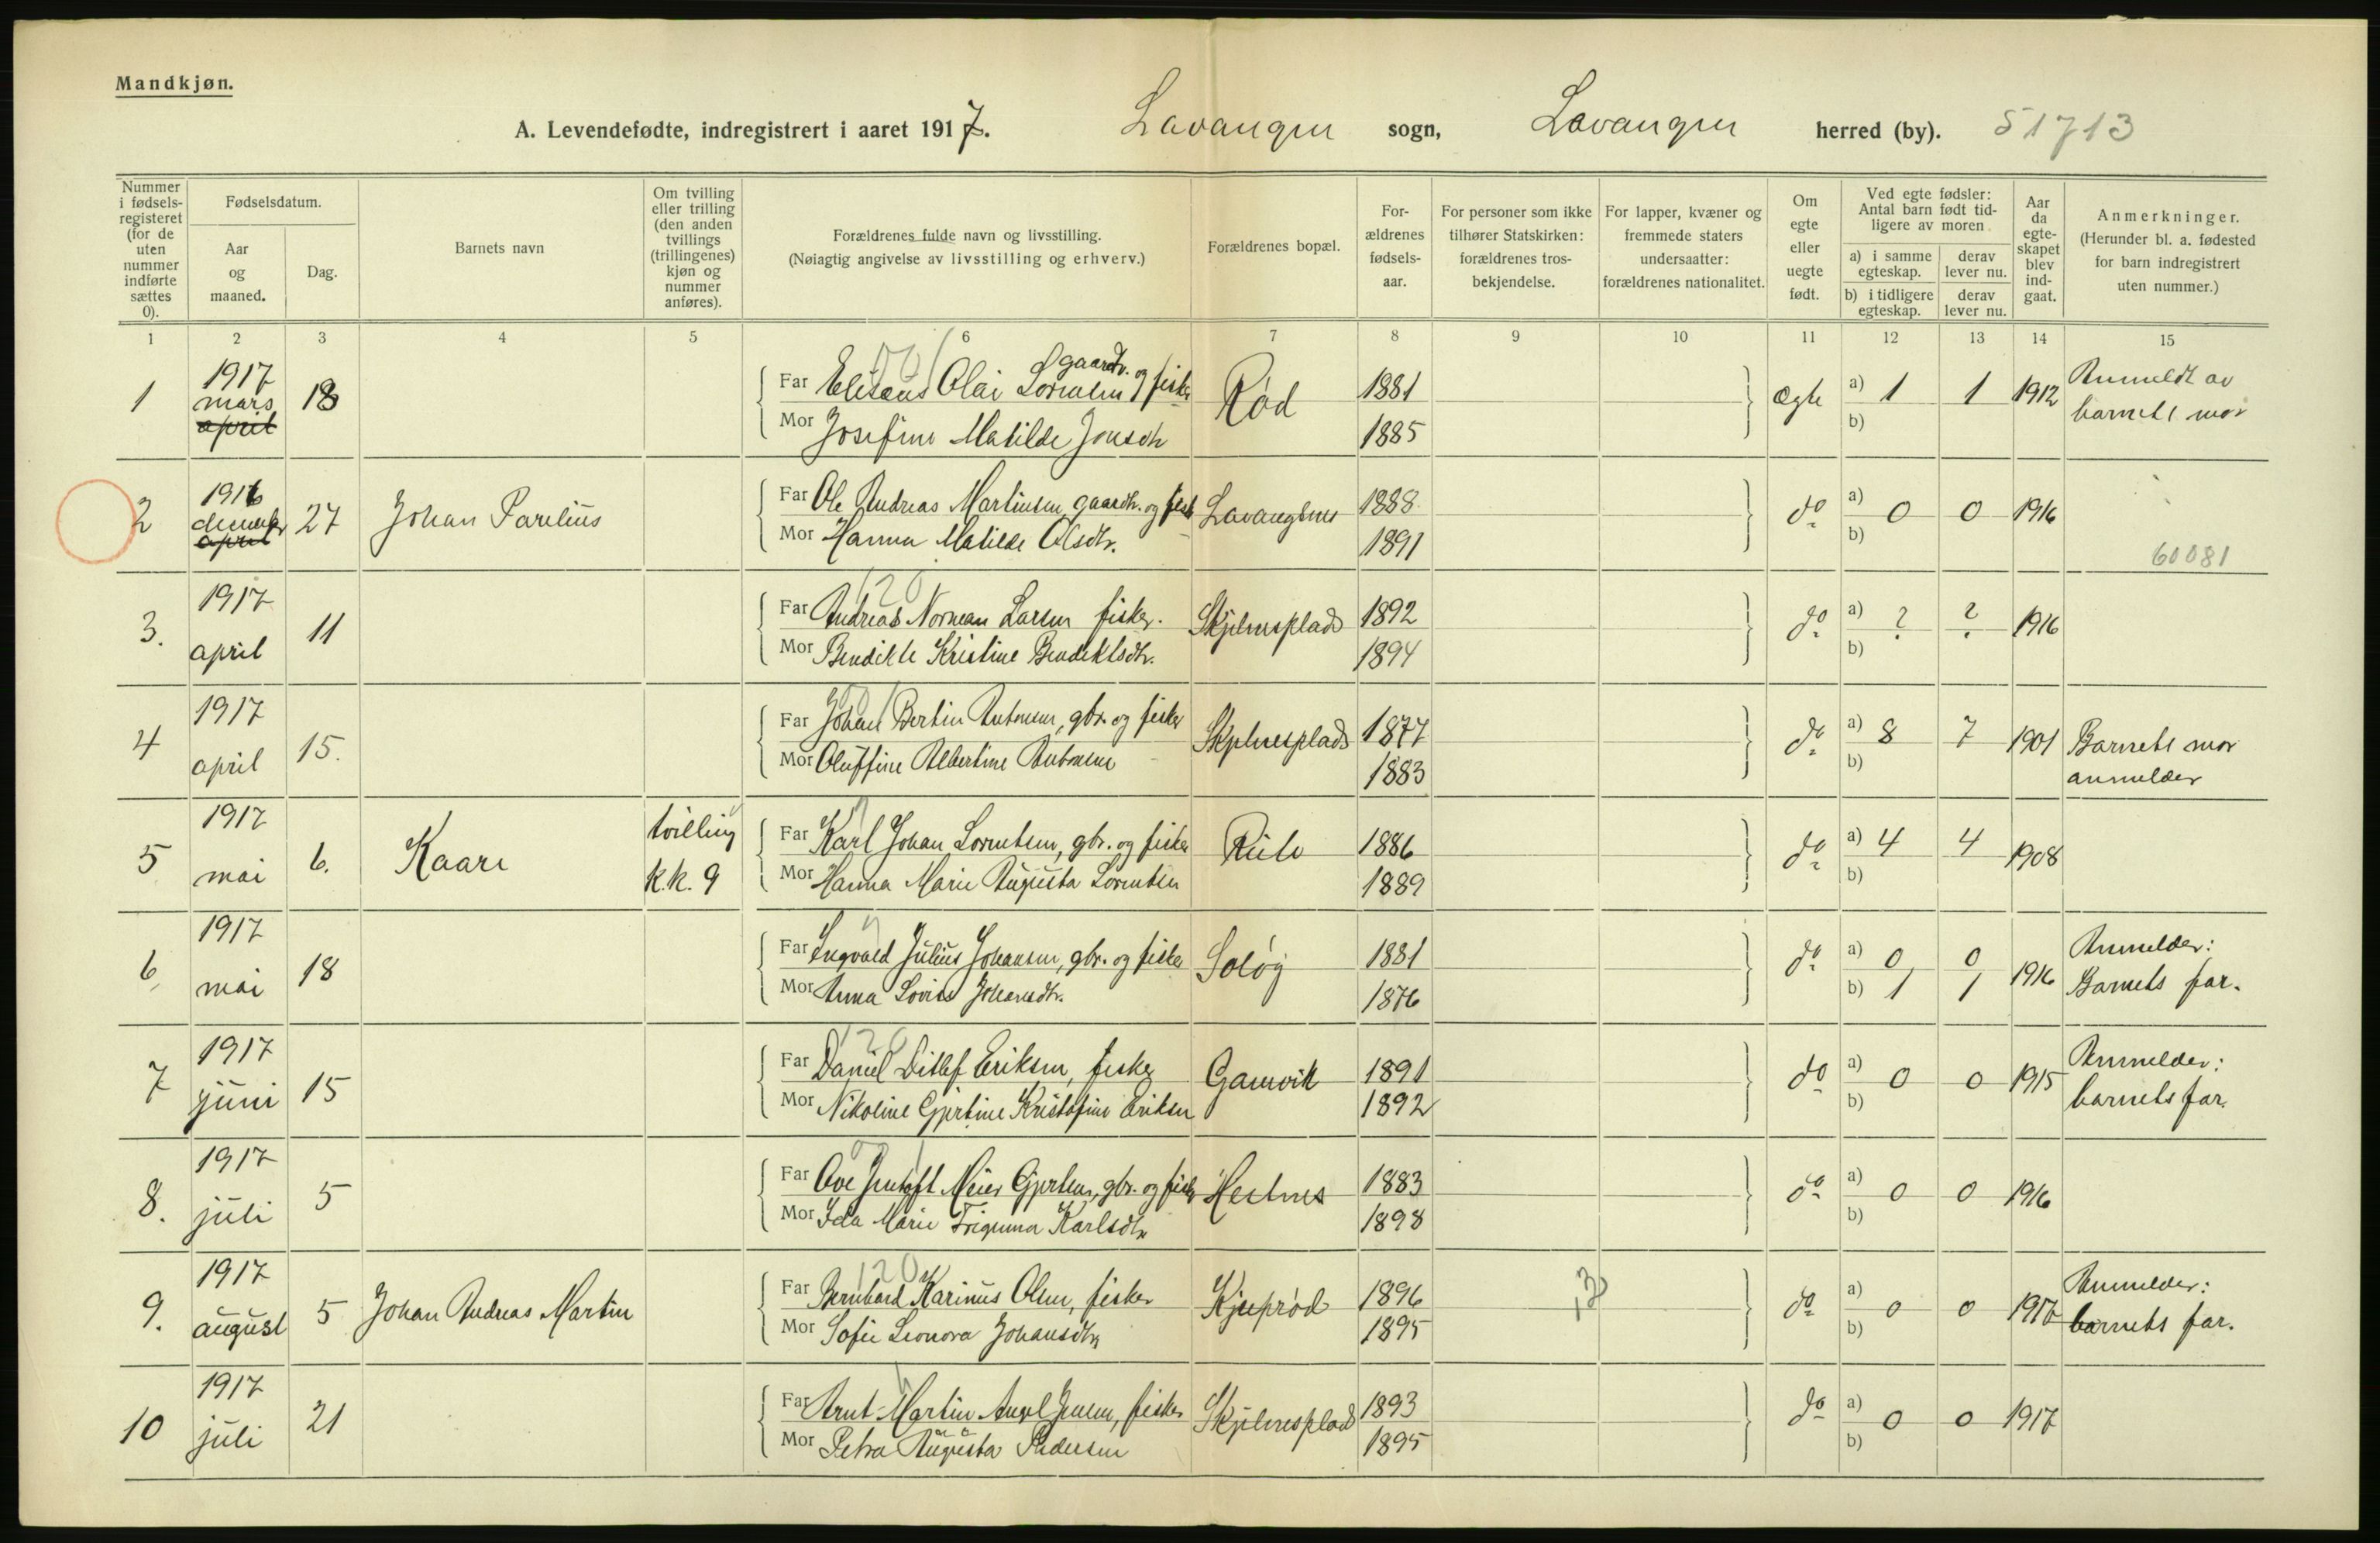 Mandkjøn.
A. Levendefødte, indregistrert i aaret 1917. Lavangen sogn, Lavangen herred (by). 51713
Nummer i fødsels-registeret (for de uten nummer indførte sættes 0).
Fødselsdatum.
Aar og maaned.
Dag.
Barnets navn
Om tvilling eller trilling (den anden tvillings (trillingenes) kjøn og nummer anføres).
Forældrenes fulde navn og livsstilling.
(Nøiagtig angivelse av livsstilling og erhverv.)
Forældrenes bopæl.
For-ældrenes fødsels-aar.
For personer som ikke tilhører Statskirken: forældrenes tros-bekjendelse.
For lapper, kvæner og fremmede staters undersaatter: forældrenes nationalitet.
Om egte eller uegte født.
Ved egte fødsler: Antal barn født tid-ligere av moren
a) i samme egteskap.
derav lever nu.
b) i tidligere egteskap.
derav lever nu.
Aar da egte-skapet blev ind-gaat.
Anmerkninger.
(Herunder bl. a. fødested for barn indregistrert uten nummer.)
1 2 3 4 5 6 7 8 9 10 11 12 13 14 15
1 1917 mars april 18 Far Eliseus Olai Lorentsen gaardbr. og fisker Rød 1881 Ægte a) 1 1 1912 Anmeldt av
Mor Josefine Matilde Jensdtr 1885 b) barnets mor
2 1916 december april 27 Johan Parelius Far Ole Andreas Martinsen, gaardbr. og fisk Lavangsnes 1888 do a) 0 0 1916
Mor Hanna Matilde Olsdtr. 1891 b) 60081
3. 1917 april 11 120 Far Andreas Norman Larsen fisker. Skjelnesplads 1892 do a) ? ? 1916
Mor Bendikte Kristine Bendektsdtr. 1894 b)
4 1917 april 15. Far Johan Bertin Antonsen, gbr. og fisker Skjelnesplads 1877 do a) 8 7 1901 Barnets mor
Mor Oluffine Albertine Antonsen 1883 b) anmelder
5 1917 mai 6. Kaare tvilling k.k. 9 Far Karl Johan Lorentsen, gbr. og fisker 1886 do a) 4 4 1908
Mor Hanna Marie Augusta Lorentsen 1889 b)
6 1917 mai 18 Far Ingvald Julius Johansen, gbr. og fisker Soløy 1881 do a) 0 0 1916 Anmelder:
Mor Anna Lovise Johansdtr. 1876 b) 1 1 Barnets far.
7 1917 juni 15 120 Far Daniel Ditlef Eriksen, fisker Gamvik 1891 do a) 0 0 1915 Anmelder:
Mor Nikoline Gjertine Kristofine Eriksen 1892 b) barnets far.
8. 1917 juli 5 Far Ove Jentoft Meier Gjertsen, gbr. og fisker Hestnes 1883 do a) 0 0 1916
Mor Ida Marie Karlsdtr 1898 b)
9. 1917 august 5 Johan Andreas Martin 120 Far Bernhard Karinus Olsen, fisker Kjeprød 1896 13 do a) 0 0 1917 Anmelder:
Mor Sofie Leonora Johansdtr 1895 b) barnets far.
10 1917 juli 21 Far Arnt Martin Axel Jensen, fisker Skjelnesplad 1893 do a) 0 0 1917
Mor Petra Augusta Pedersen 1895 b)